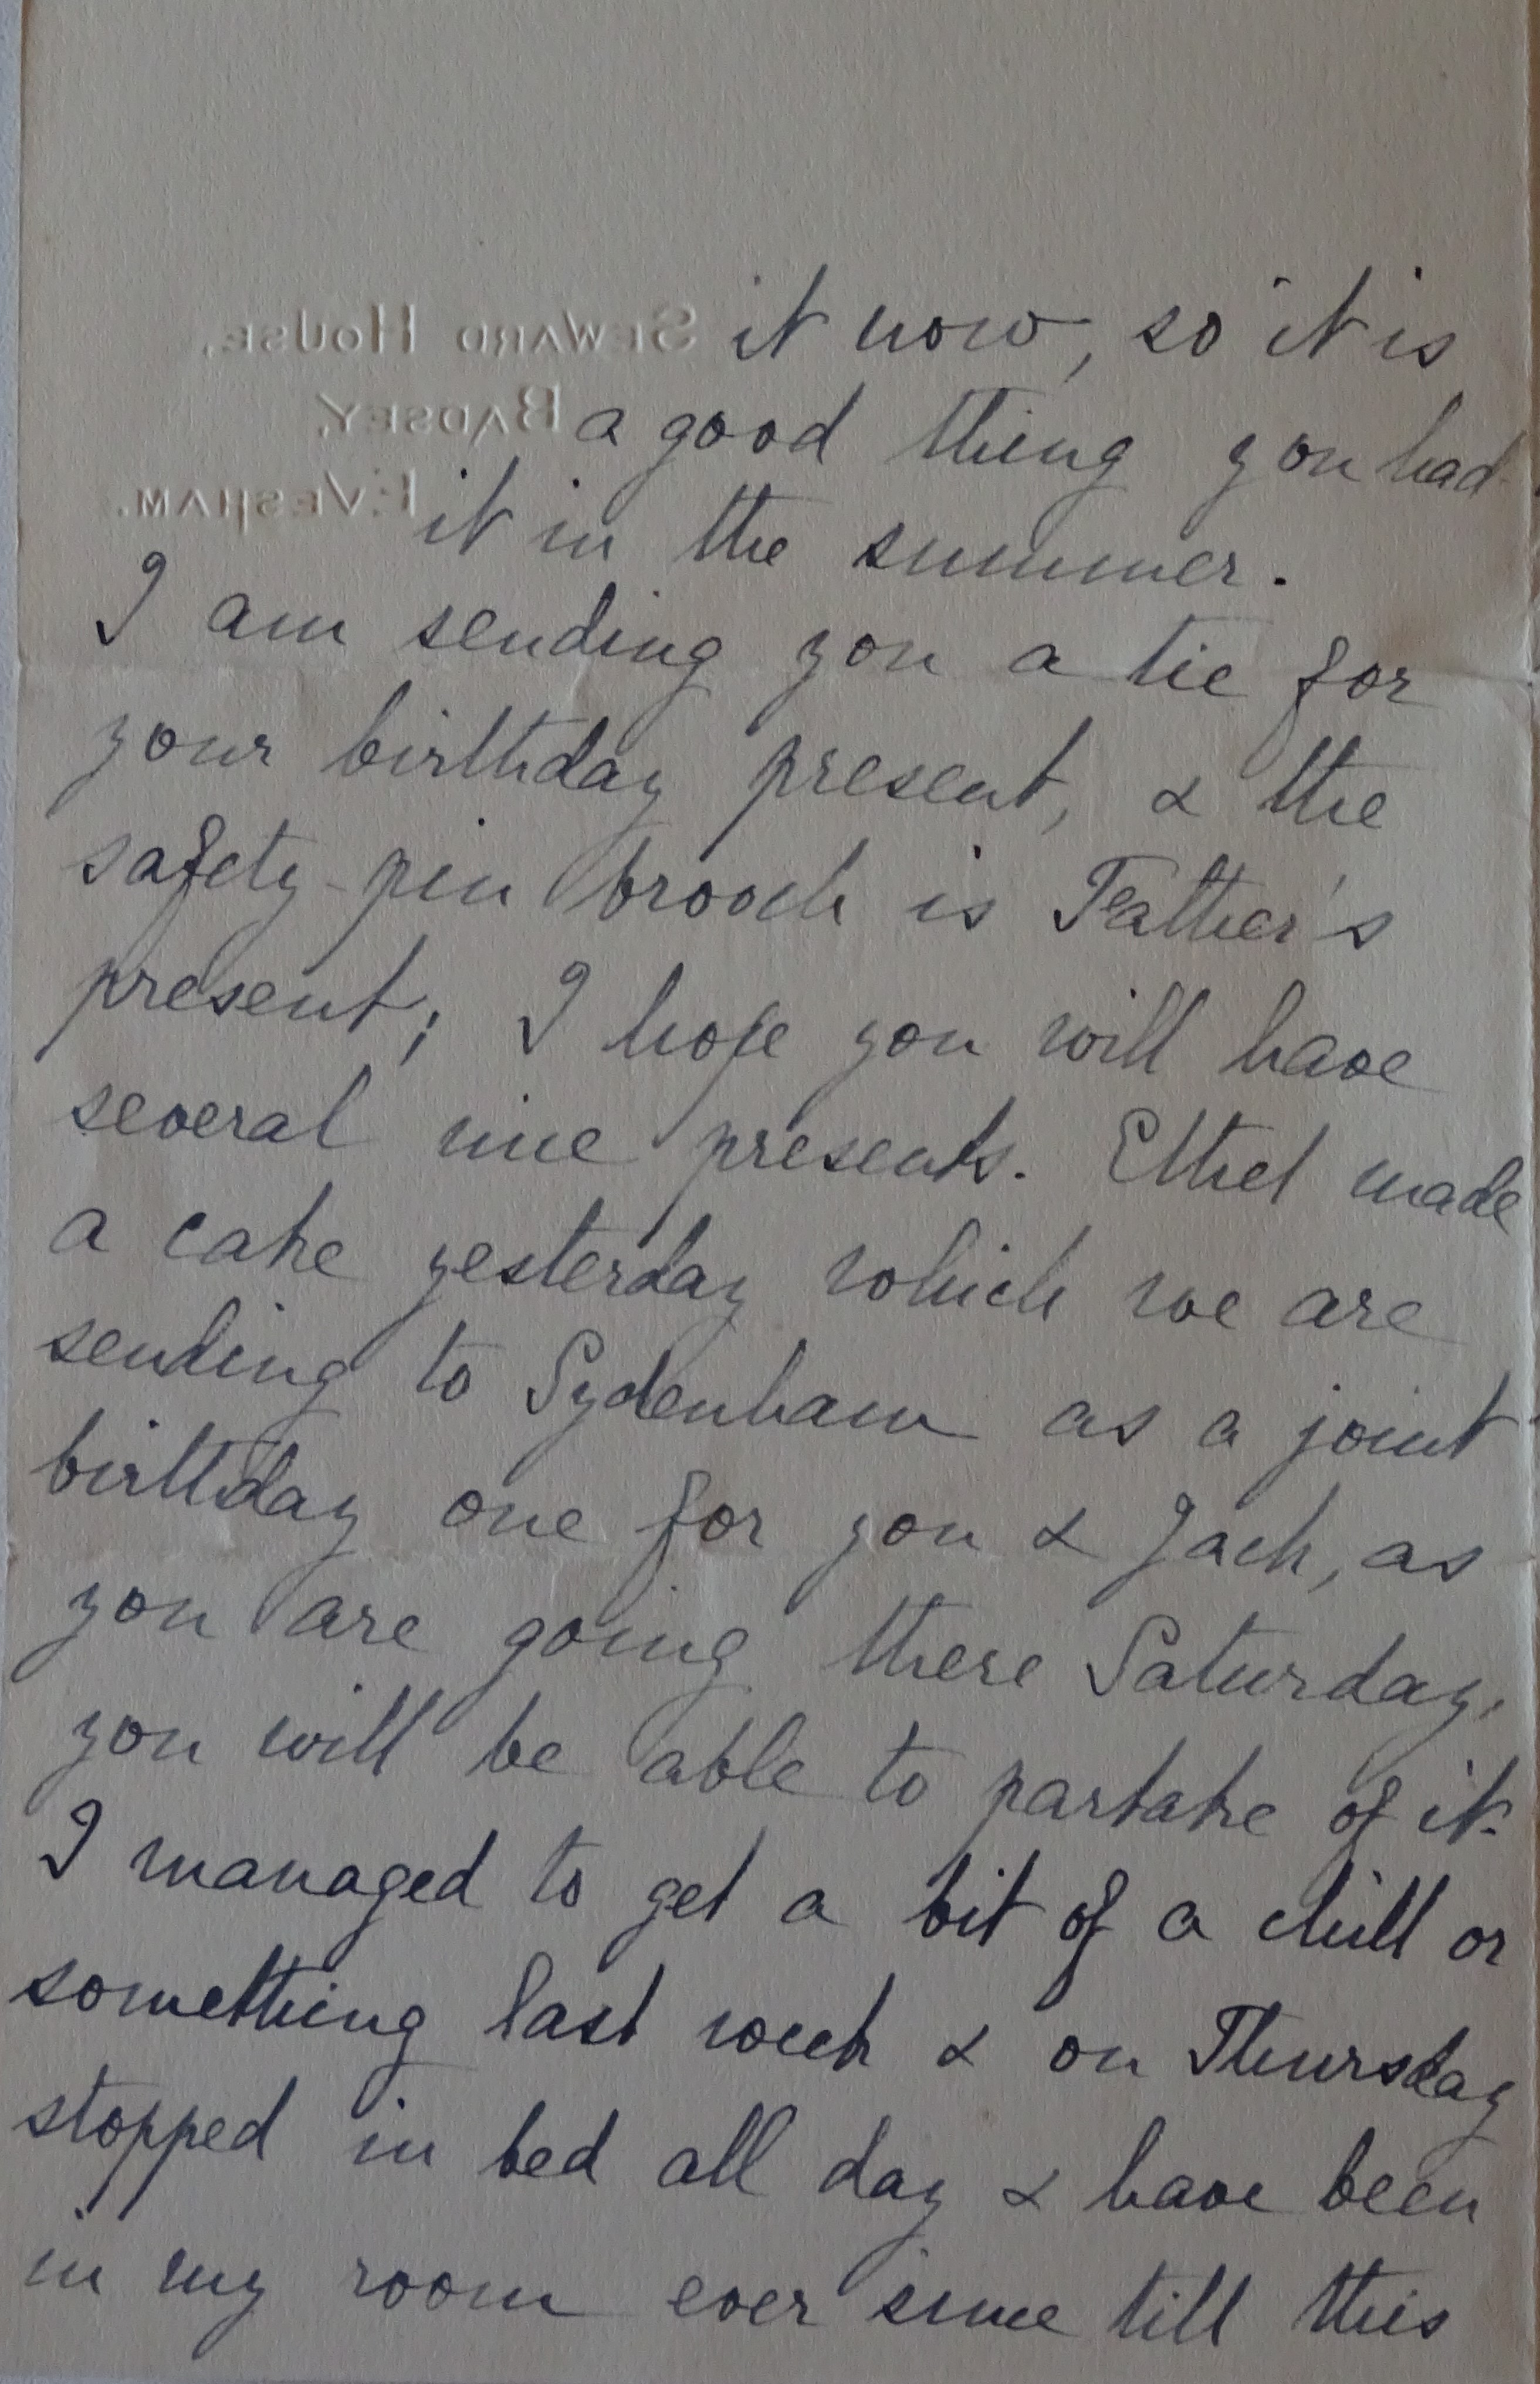 SEWARD HOUSE,
BADSEY,
EVESHAM.
it now, so it is
a good thing you had
it in the summer.
I am sending you a tie for
your birthday present, & the
safety-pin brooch is Father's
present; I hope you will have
several nice presents. Ethel made
a cake yesterday which we are
sending to Sydenham as a joint
birthday one for you & Jack, as
you are going there Saturday,
you will be able to partake of it.
I managed to get a bit of a chill or
something last week & on Thursday
stopped in bed all day & have been
in my room ever since till this